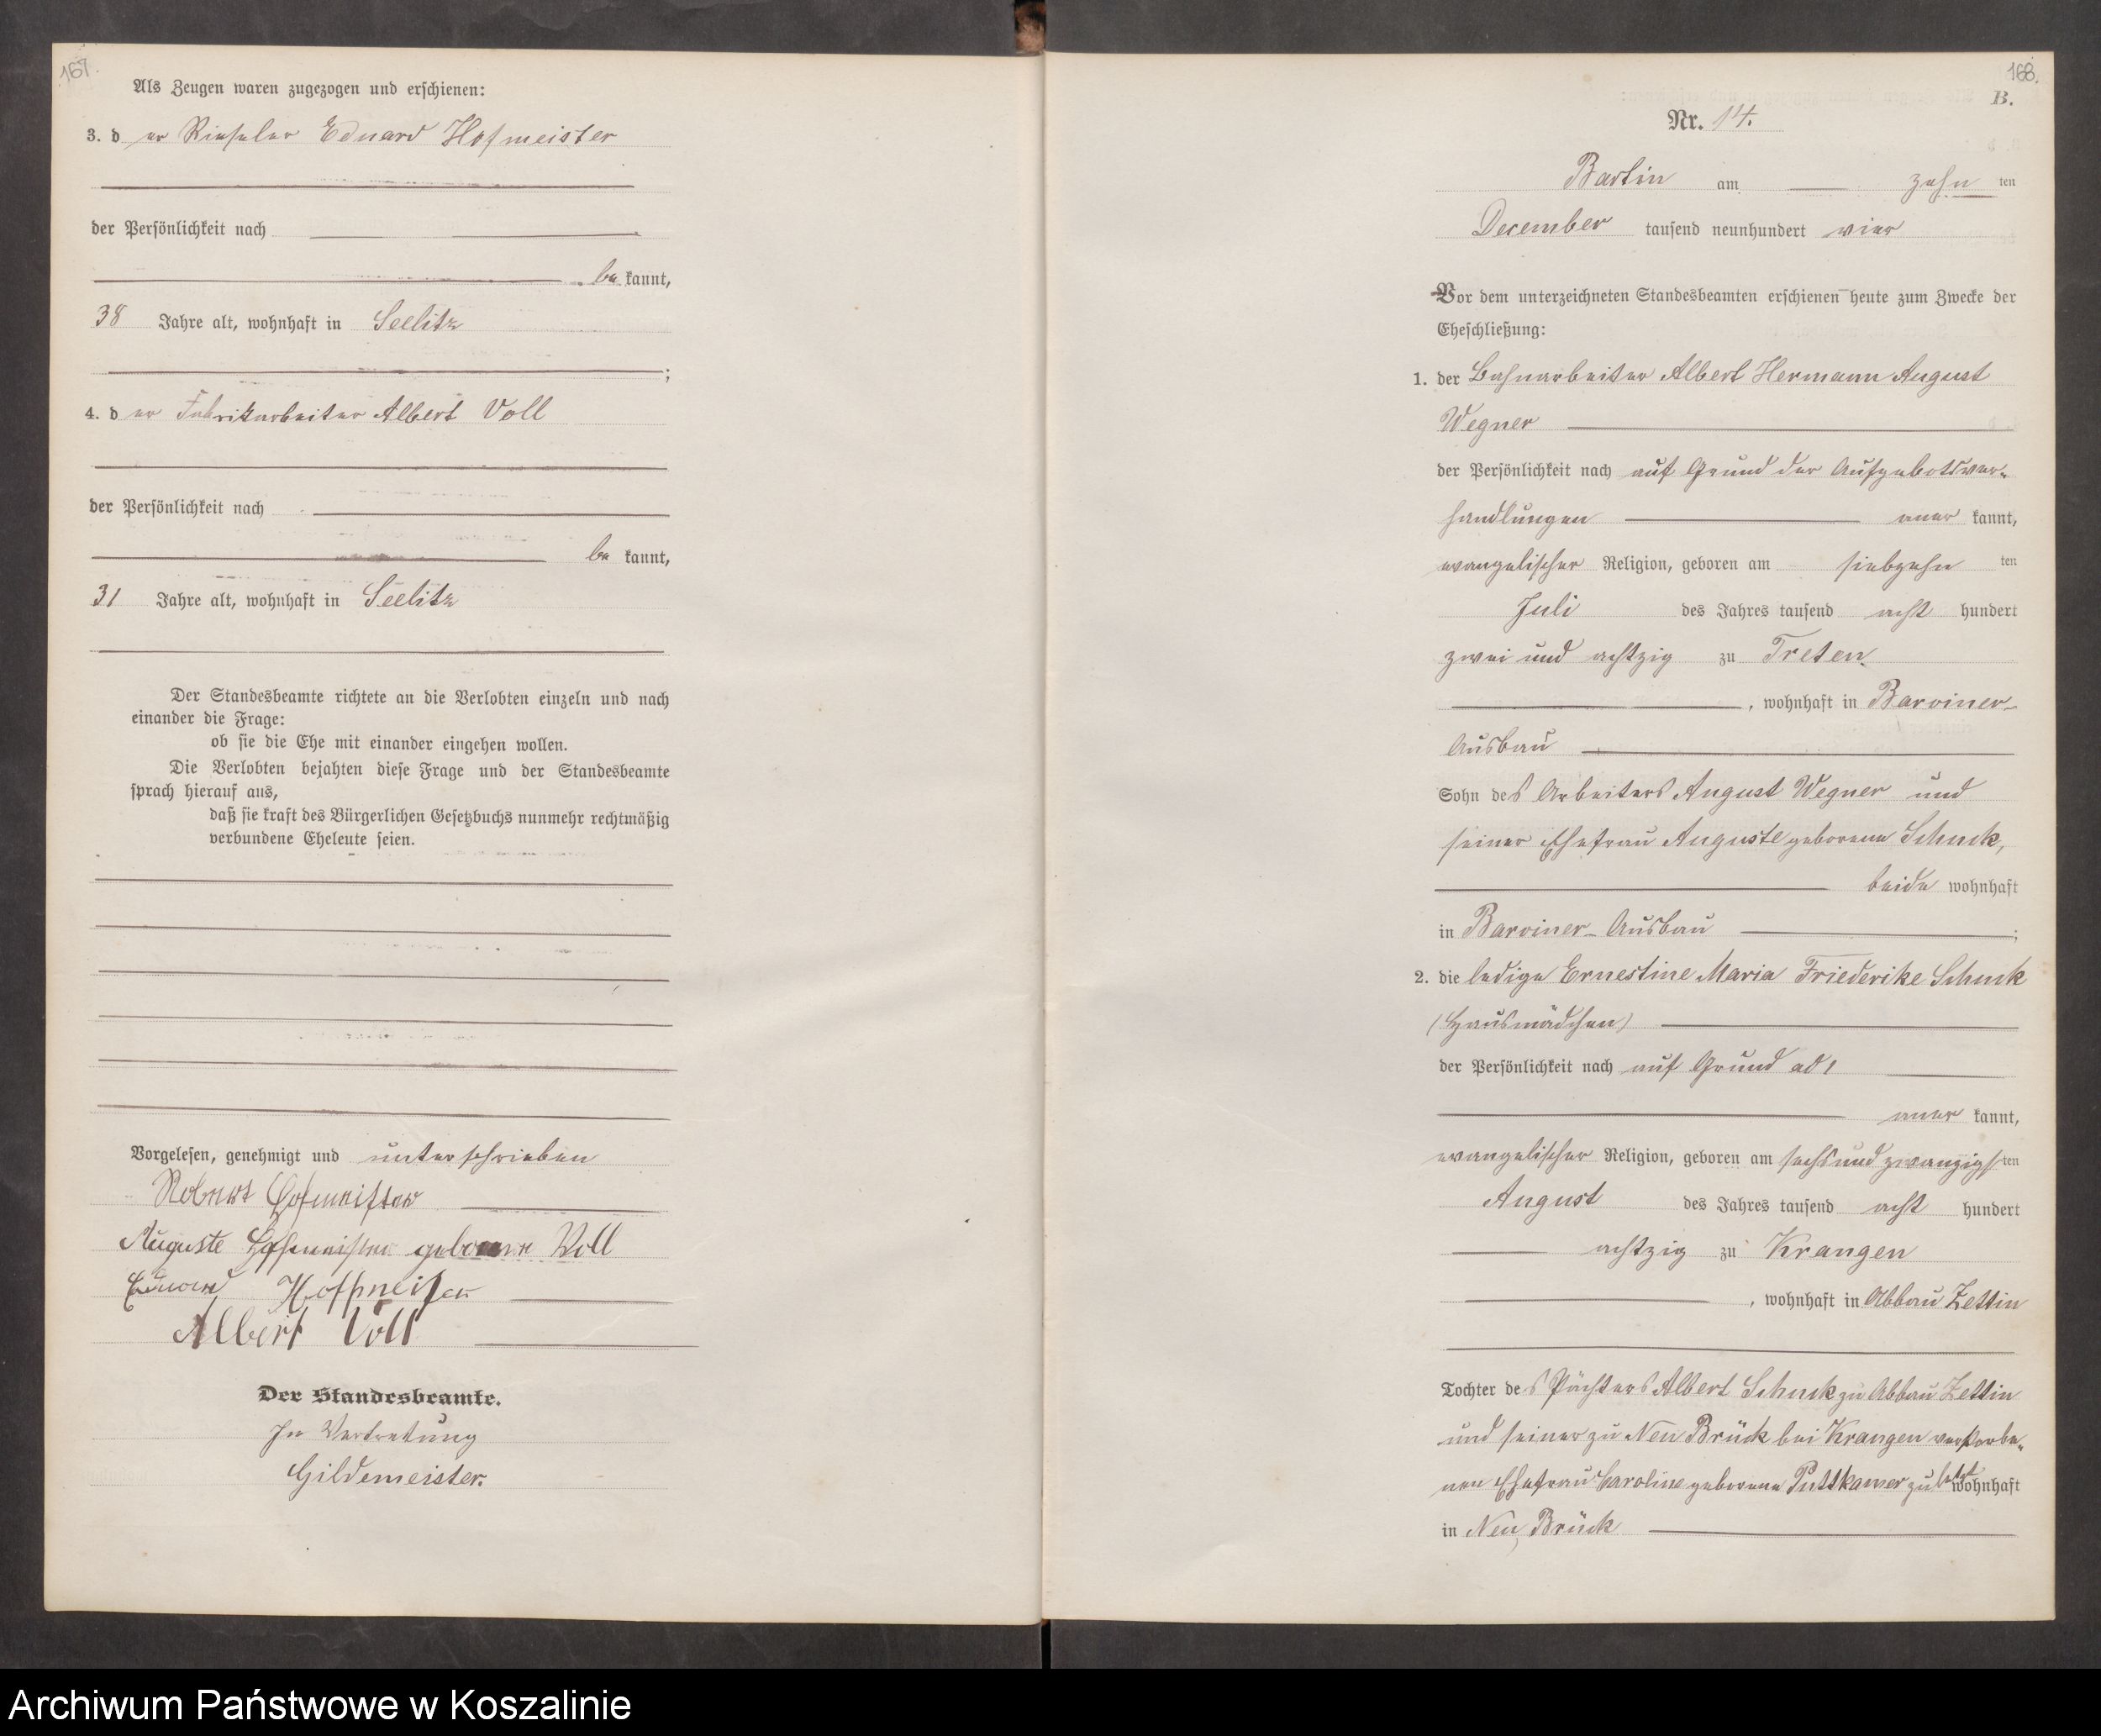 167.
Als Zeugen waren zugezogen und erschienen:
3. der Rieseler Eduard Hofmeister
der Persönlichkeit nach
be kannt,
38 Jahre alt, wohnhaft in Seelitz
;
4. der Fabrikarbeiter Albert Voll
der Persönlichkeit nach
be kannt,
31 Jahre alt, wohnhaft in Seelitz
Der Standesbeamte richtete an die Verlobten einzeln und nach
einander die Frage:
ob sie die Ehe mit einander eingehen wollen.
Die Verlobten bejahten diese Frage und der Standesbeamte
sprach hierauf aus,
daß sie kraft des Bürgerlichen Gesetzbuchs nunmehr rechtmäßig
verbundene Eheleute seien.
Vorgelesen, genehmigt und unterschrieben
Robert Hofmeister
Auguste Hofmeister geborene Voll
Eduard Hofmeister
Albert Voll
Der Standesbeamte.
In Vertretung
Gildemeister.
168.
B.
Nr. 14.
Bartin am zehn ten
December tausend neunhundert vier
Vor dem unterzeichneten Standesbeamten erschienen heute zum Zwecke der
Eheschließung:
1. der Bahnarbeiter Albert Hermann August
Wegner
der Persönlichkeit nach auf Grund der Aufgebotsver-
handlungen aner kannt,
evangelischer Religion, geboren am siebzehn ten
Juli des Jahres tausend acht hundert
zwei und achtzig zu Treten
, wohnhaft in Barviner-
Ausbau
Sohn des Arbeiters August Wegner und
seiner Ehefrau Auguste geborene Schuck,
beide wohnhaft
in Barviner-Ausbau ;
2. die ledige Ernestine Maria Friederike Schuck
(Hausmädchen)
der Persönlichkeit nach auf Grund ad 1
aner kannt,
evangelischer Religion, geboren am sechsundzwanzigsten
August des Jahres tausend acht hundert
achtzig zu Krangen
, wohnhaft in Abbau Zettin
Tochter des Pächters Albert Schuck zu Abbau Zettin
und seiner zu Neu Brück bei Krangen verstorbe-
nen Ehefrau Caroline geborene Puttkamer zuletzt wohnhaft
in Neu Brück
Archiwum Państwowe w Koszalinie